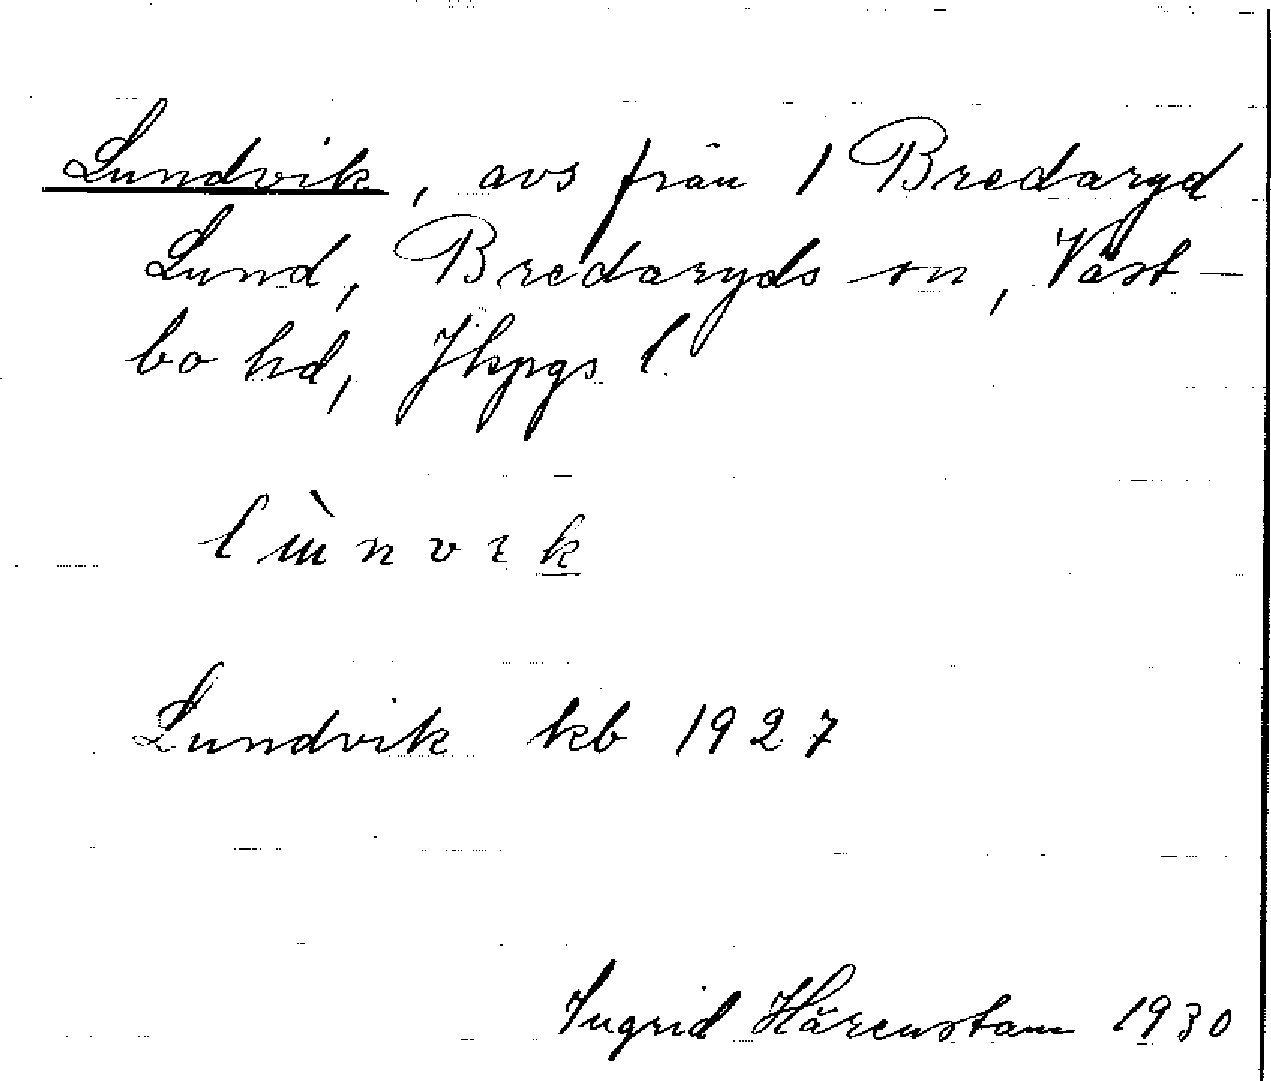 Lundvik, avs från 1 Bredaryd
Lund, Bredaryds sn, Väst-
bo hd, Jkpgs l.
Lundvik kb 1927
Ingrid Härenstam 1930